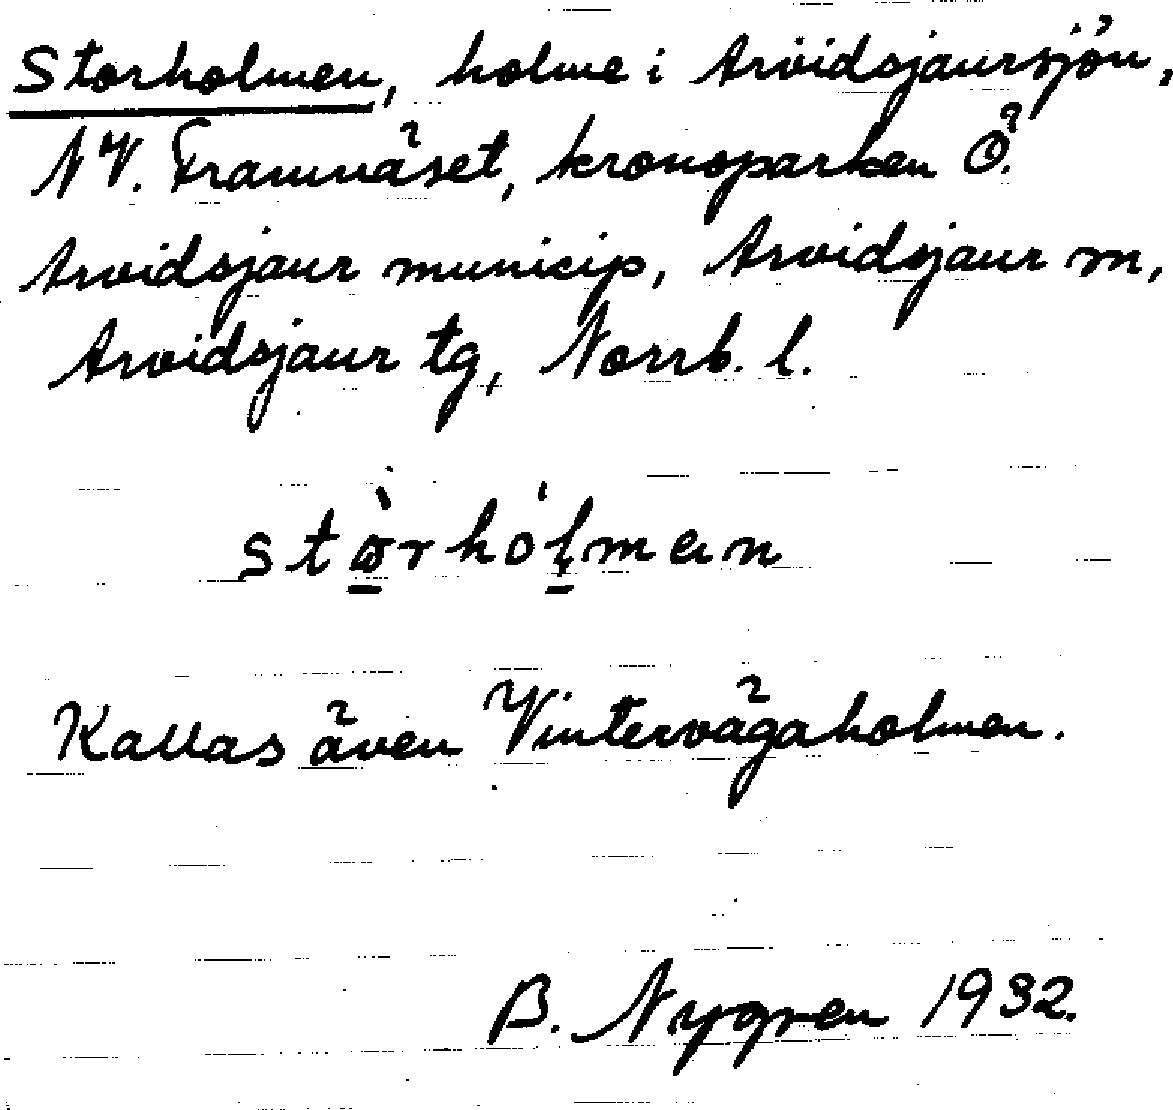 Storholmen, holme i Arvidsjaursjön,
NV. Framnäset, kronoparken Ö.
Arvidsjaur municip, Arvidsjaur m,
Arvidsjaur tg, Norrb. l.
stòrhólman
Kallas även Vintervägaholmen.
B. Nygren 1932.